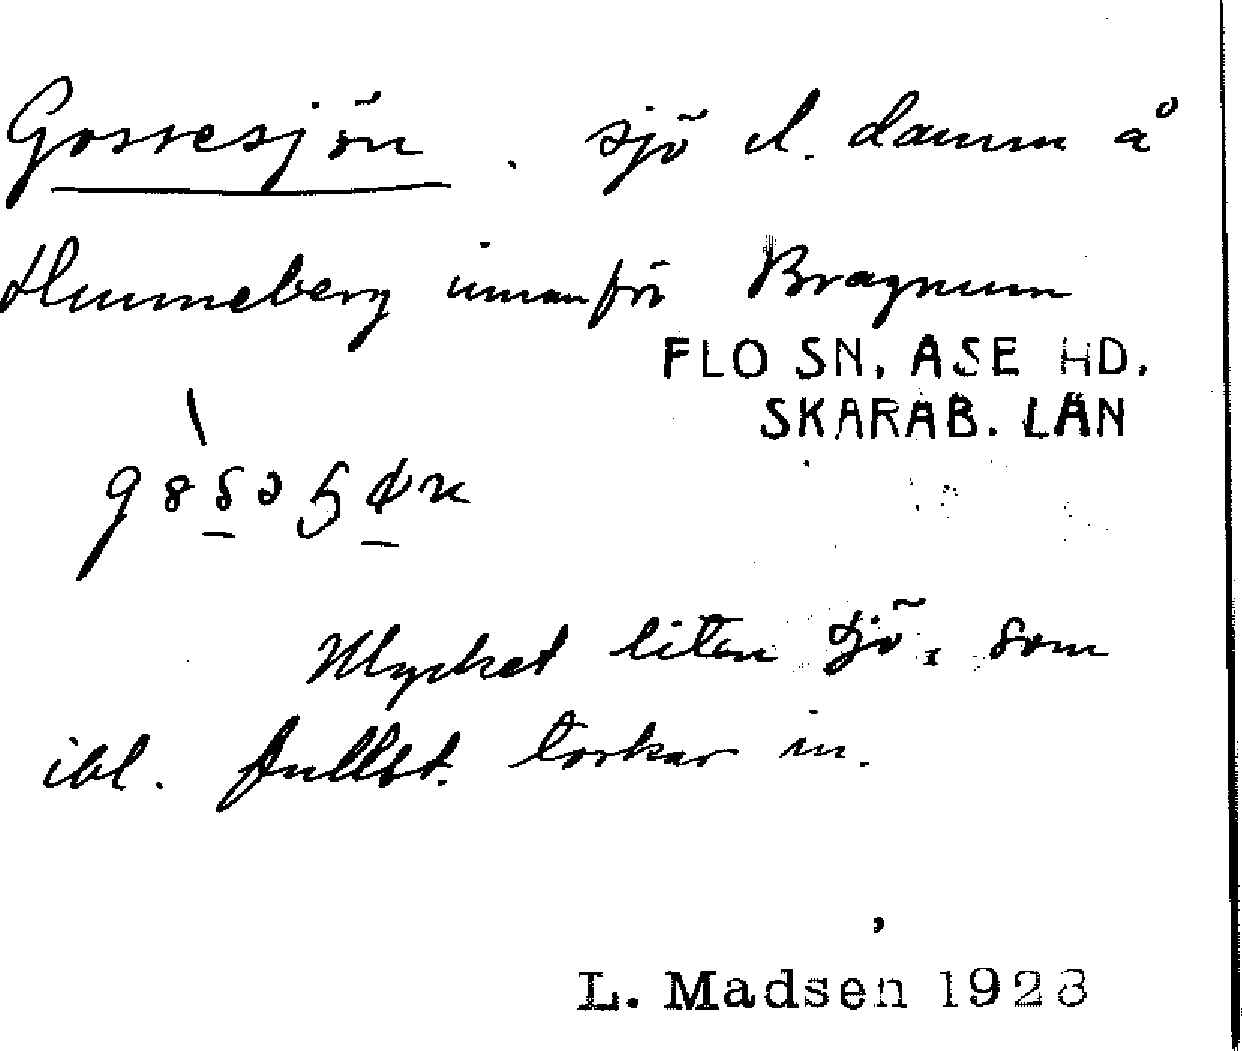 Gossesjön . sjö el. damm å
Hunneberg innanför Bragnum
FLO SN. ÅSE HD.
SKARAB. LÄN
Mycket liten sjö, som
ibl. fullst. torkar in.
L. Madsen 1928